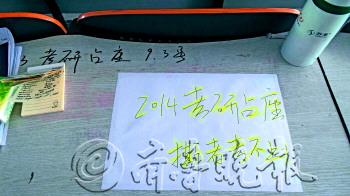 考研占座 9.3号
2014考研占座
擅者考不上
齐鲁晚报